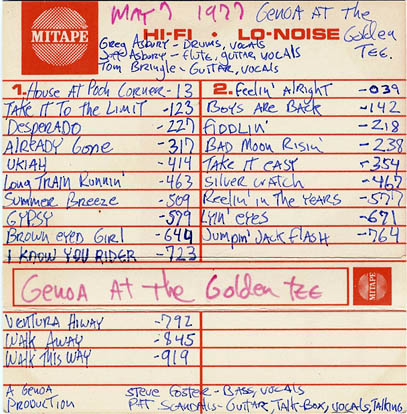 MAY 7 1977 GENOA AT The Golden TEE.
MITAPE
HI-FI • LO-NOISE
Greg Asbury - Drums, vocals
Asbury - Flute, guitar, vocals
Tom Bringle - Guitar, vocals
1. House At Pooh Corner - 13
TAKE IT TO THE LIMIT - 123
DESPERADO - 227
ALREADY GONE - 317
UKIAH - 414
Long TRAIN RUNNIN' - 463
Summer Breeze - 509
GYPSY - 579
BROWN EYED GIRL - 644
I KNOW YOU RIDER - 723
2. Feelin' Alright - 039
BOYS ARE BACK - 142
FIDDLIN' - 218
BAD MOON RISIN' - 238
TAKE IT EASY - 354
SILVER WATCH - 467
Reelin' in The YEARS - 577
LYIN' EYES - 671
JUMPIN' JACK FLASH - 764
GENOA AT The Golden TEE
MITAPE
VENTURA HIWAY - 792
WALK AWAY - 845
WALK THIS WAY - 919
A GENOA PRODUCTION
STEVE GOSTER - BASS, VOCALS
PAT SCANDALIS - GUITAR, TALK-BOX, VOCALS, TALKING,